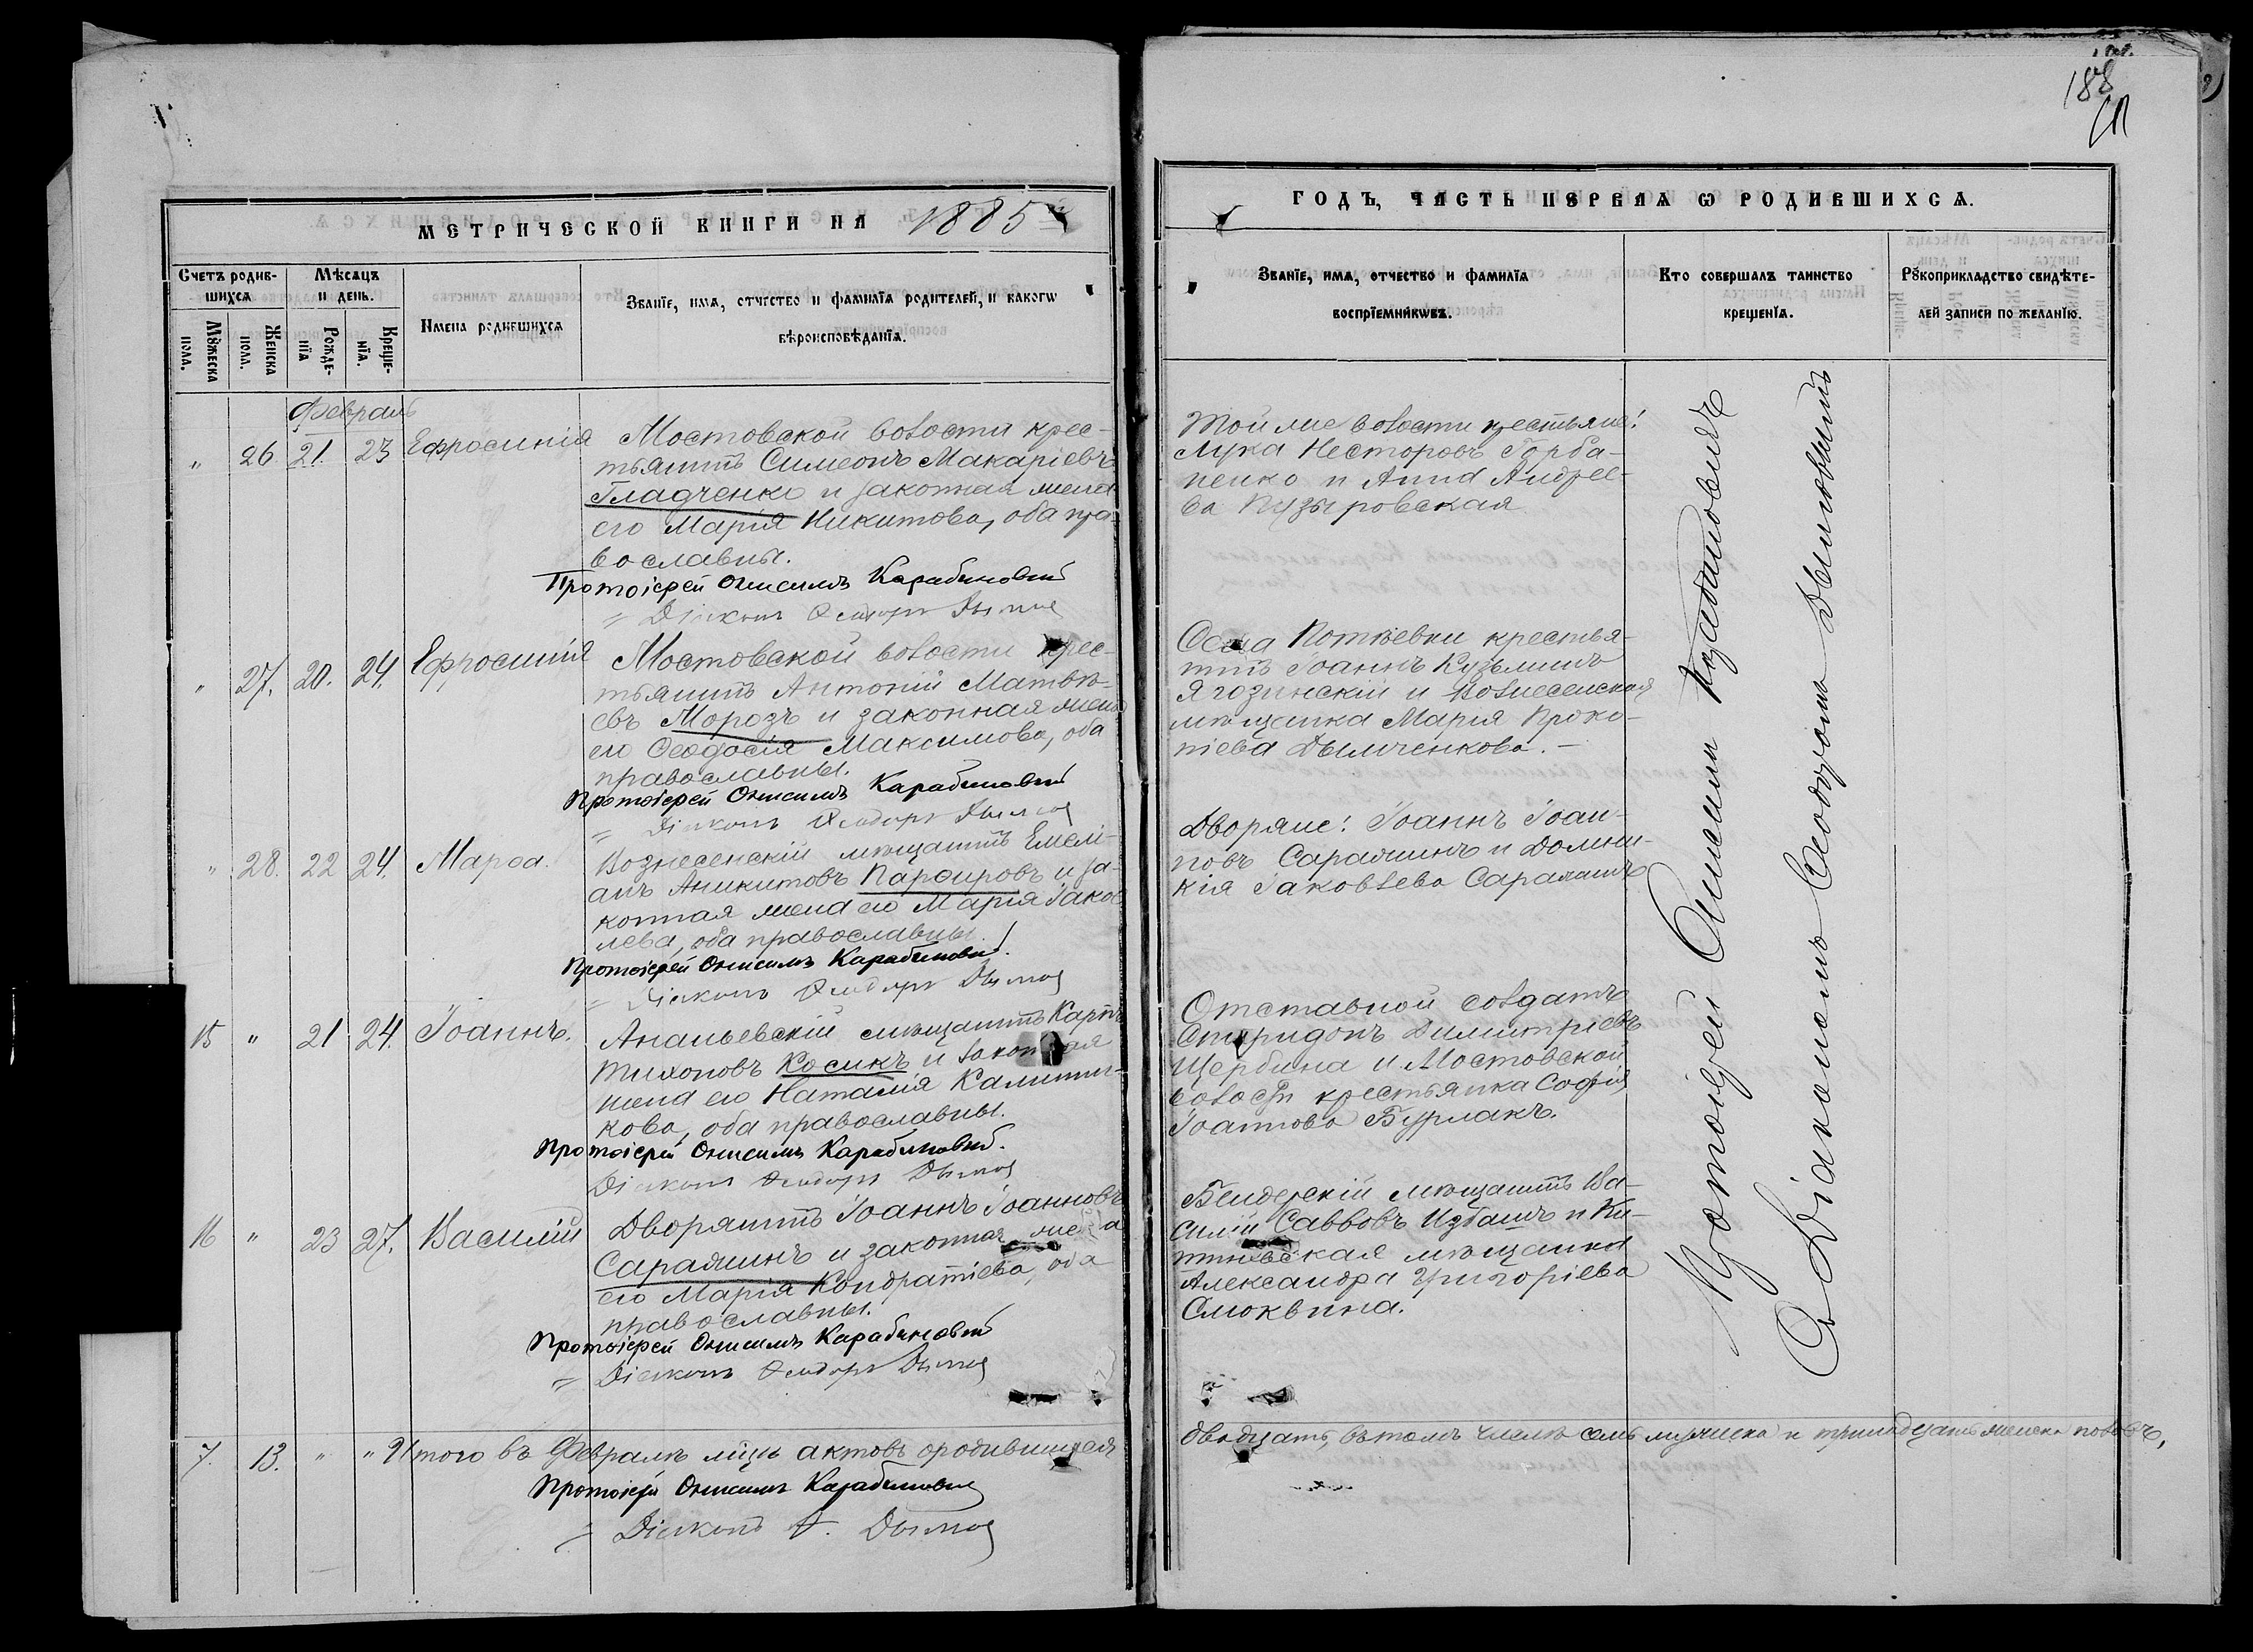 188
МЕТРИЧЕСКОЙ КНИГИ НА 1885
ГОДЪ, ЧАСТЬ ПЕРВАЯ Ѡ РОДИВШИХСЯ.
Счетъ родив-
шихся
Мѣсяцъ
и день.
Мꙋжеска
пола.
Женска
пола.
Рожде-
нїя
Креще-
нїя.
Имена родившихся
Званїе, имя, отчество и фамилїя родителей, и какогѡ
вѣроисповѣданїя.
Званїе, имя, отчество и фамилїя
воспрїемникѡвъ.
Кто совершалъ таинство
крещенїя.
Рꙋкоприкладство свидѣте-
лей записи по желанїю.
Февраль
" 26. 21. 23 Ефросинія
Мостовской волости крес-
тьянинъ Симеонъ Макаріевъ
Гладченко и законная жена
его Марія Никитова, оба пра-
вославны.
Протоіерей Онисимъ Карабиновий
Діаконъ Феодоръ
Той же волости крестьяне:
Лука Несторовъ Горба-
ненко и Анна Андрее-
ва Пузыровская
" 27. 20. 24. Ефросинія
Мостовской волости крес-
тьянинъ Антоній Матвѣ-
евъ Морозъ и законная жена
его Феодосія Максимова, оба
православны.
Протоіерей Онисимъ Карабиновий
Діаконъ Феодоръ
Села Крестья-
нинъ Іоаннъ Кузьминъ
Ягозинскій и Вознесенская
мѣщанка Марія Проко-
піева Дымченкова.
" 28. 22 24. Марѳа.
Вознесенскій мѣщанинъ Емелі-
анъ Аникитовъ Парѳировъ и за-
конная жена его Марія Іаков-
лева, оба православны.
Протоіерей Онисимъ Карабиновий.
Діаконъ Феодоръ
Дворяне: Іоаннъ Іоан-
новъ и Домни-
кія Іаковлева
15 " 21 24. Іоаннъ.
Ананьевскій мѣщанинъ Карпъ
Тихоновъ Косикъ и законная
жена его Наталія Калинни-
кова, оба православны.
Протоіерей Онисимъ Карабиновий.
Діаконъ Феодоръ
Отставной солдатъ
Спиридонъ Димитріевъ
Щербина и Мостовской
волости крестьянка Софія
Іоаннова Бурлакъ.
16 " 23 27. Василій
Дворянинъ Іоаннъ Іоанновъ
и законная жена
его Марія Кондратіева, оба
православны.
Протоіерей Онисимъ Карабиновий
Діаконъ Феодоръ
Бендерскій мѣщанинъ Ва-
силій Саввовъ Избашъ и Ки-
шиневская мѣщанка
Александра Григоріева
Смоквина.
Протоіерей Онисимъ
съ Діакономъ Феодоромъ
7. 13. " " Итого въ Февралѣ мѣсяцѣ актовъ о родившихся
двадцать, въ томъ числѣ семь мужеска и тринадцать женска половъ,
Протоіерей Онисимъ Карабиновий
Діаконъ Ф.